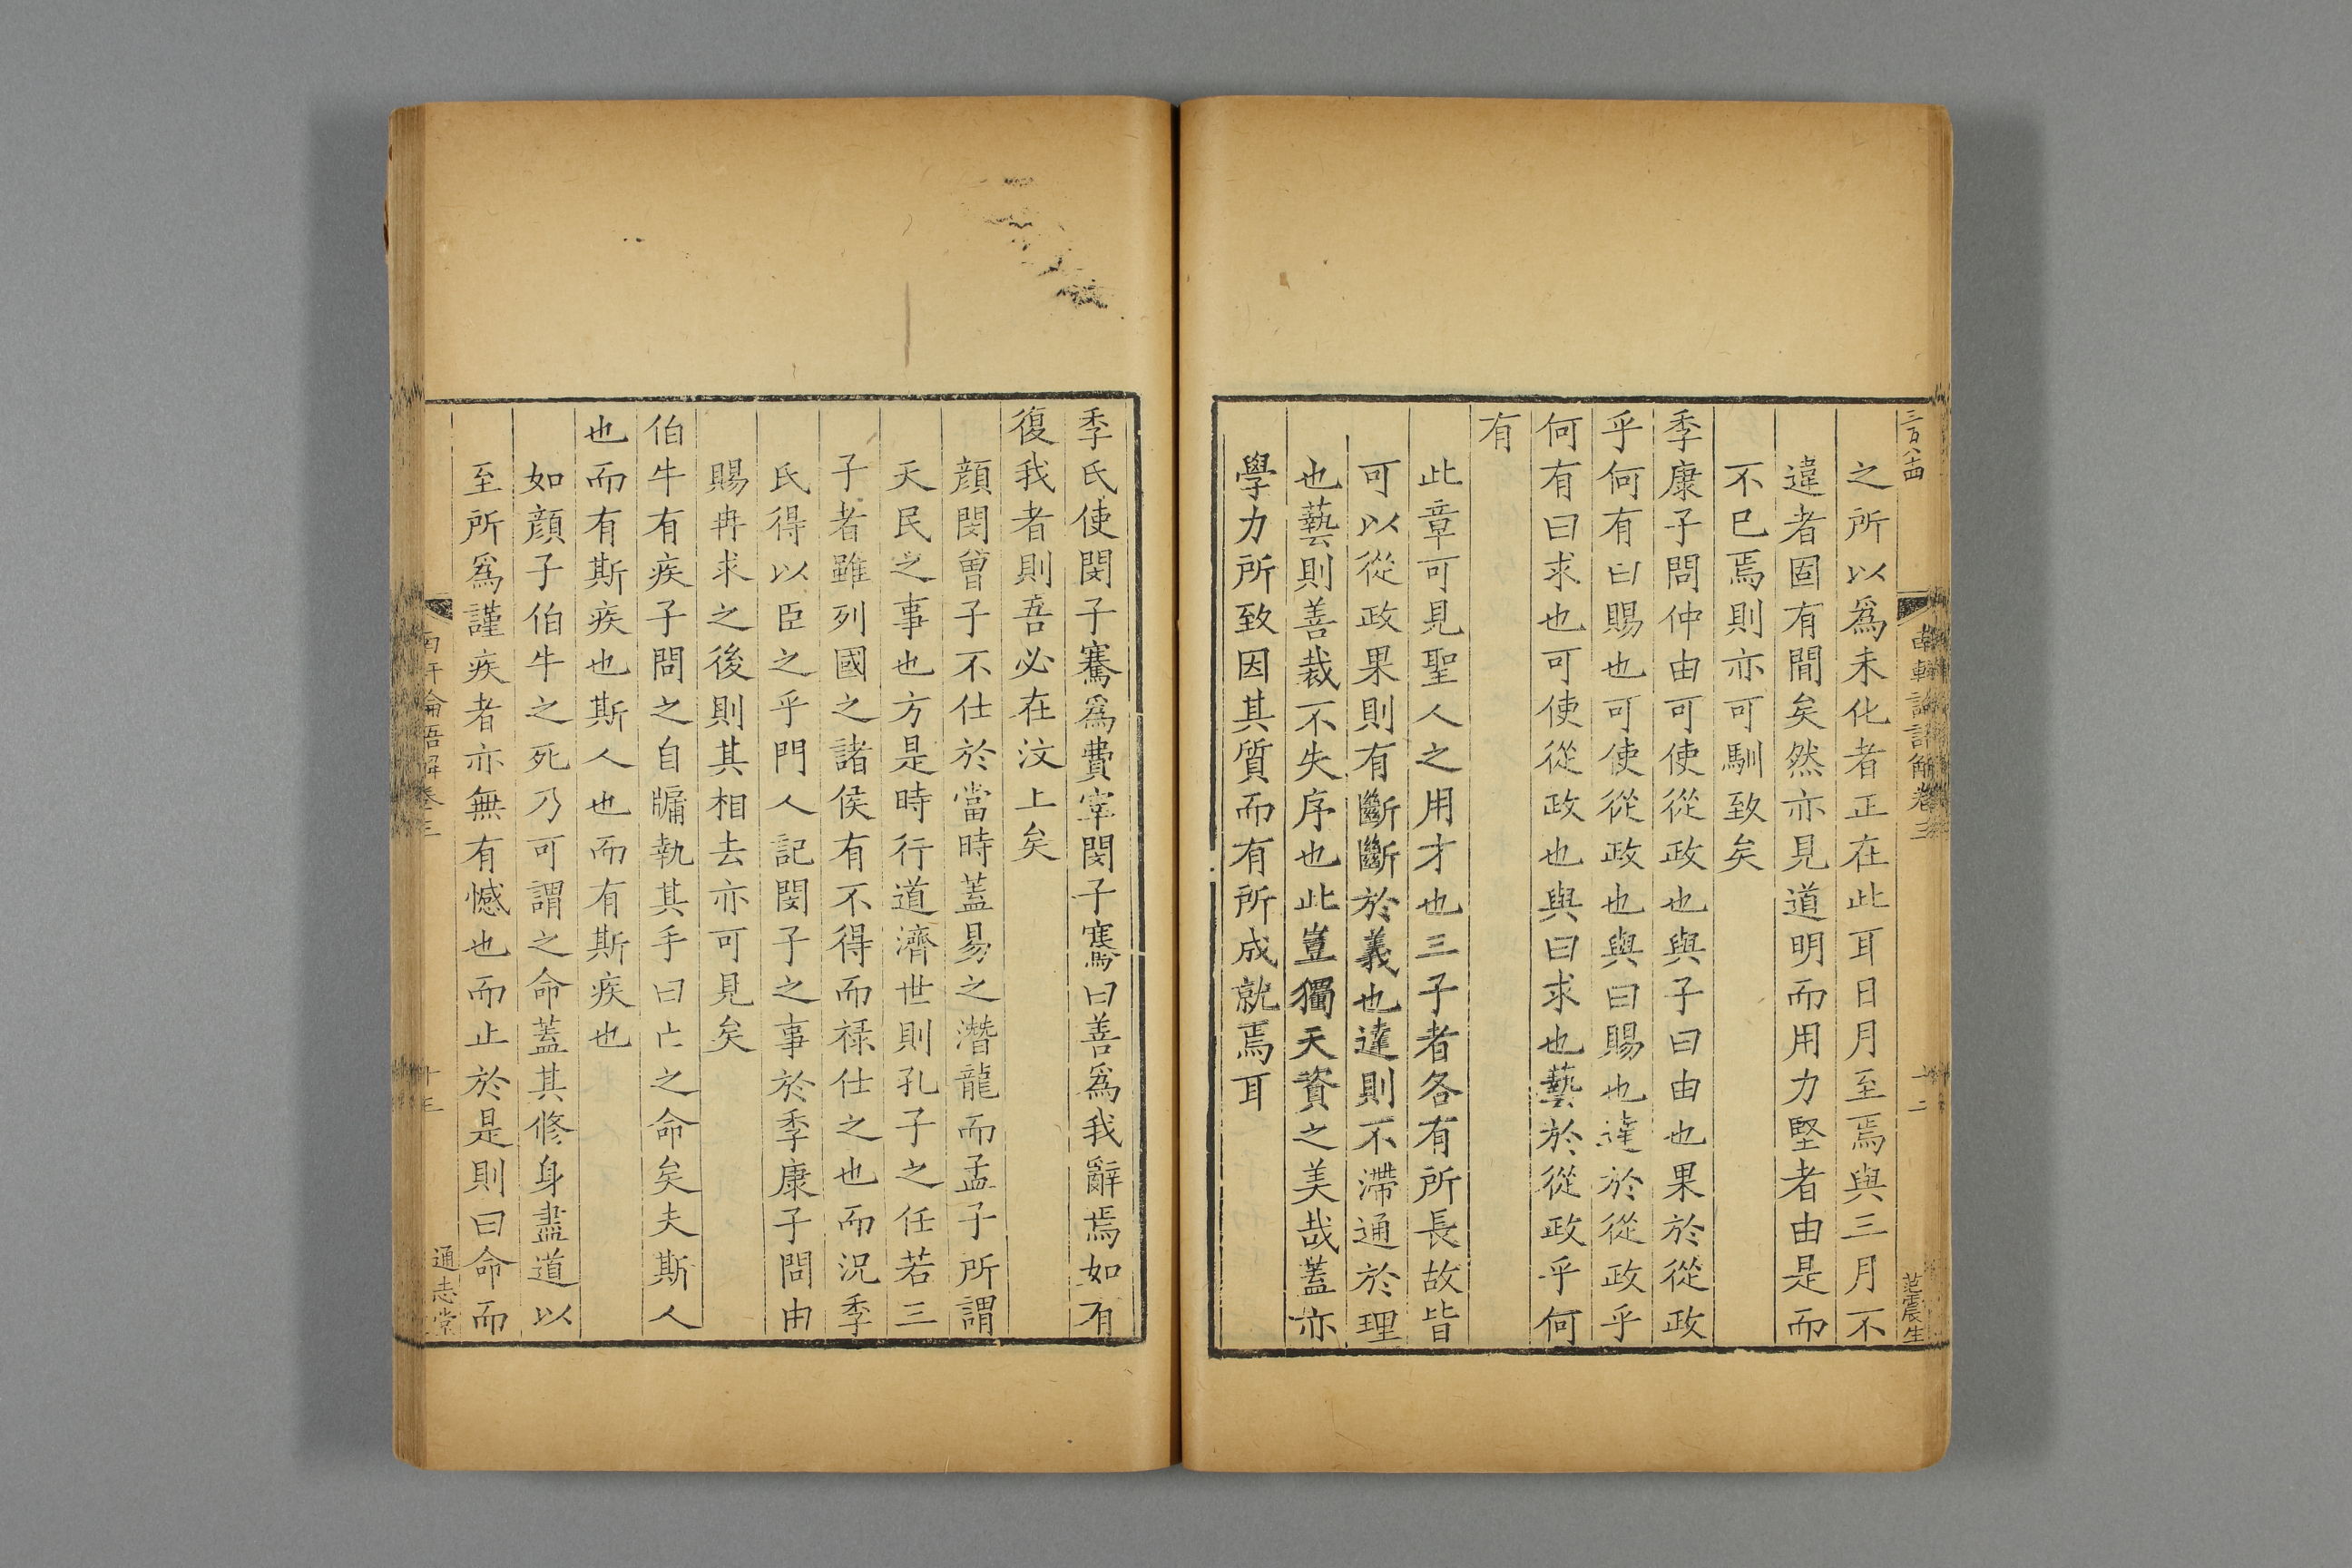 三百八十四
南軒論語解卷三
十二
范震生
之所以爲未化者正在此耳日月至焉與三月不
違者固有間矣然亦見道明而用力堅者由是而
不已焉則亦可馴致矣
季康子問仲由可使從政也與子曰由也果於從政
乎何有曰賜也可使從政也與曰賜也達於從政乎
何有曰求也可使從政也與曰求也藝於從政乎何
有
此章可見聖人之用才也三子者各有所長故皆
可以從政果則有斷斷於義也達則不滯通於理
也藝則善裁不失序也此豈獨天資之美哉蓋亦
學力所致因其質而有所成就焉耳
季氏使閔子騫爲費宰閔子騫曰善爲我辭焉如有
復我者則吾必在汶上矣
顏閔曾子不仕於當時蓋易之潛龍而孟子所謂
天民之事也方是時行道濟世則孔子之任若三
子者雖列國之諸侯有不得而祿仕之也而況季
氏得以臣之乎門人記閔子之事於季康子問由
賜冉求之後則其相去亦可見矣
伯牛有疾子問之自牖執其手曰亡之命矣夫斯人
也而有斯疾也斯人也而有斯疾也
如顏子伯牛之死乃可謂之命蓋其修身盡道以
至所爲謹疾者亦無有憾也而止於是則曰命而
南軒論語解卷三
十三
通志堂